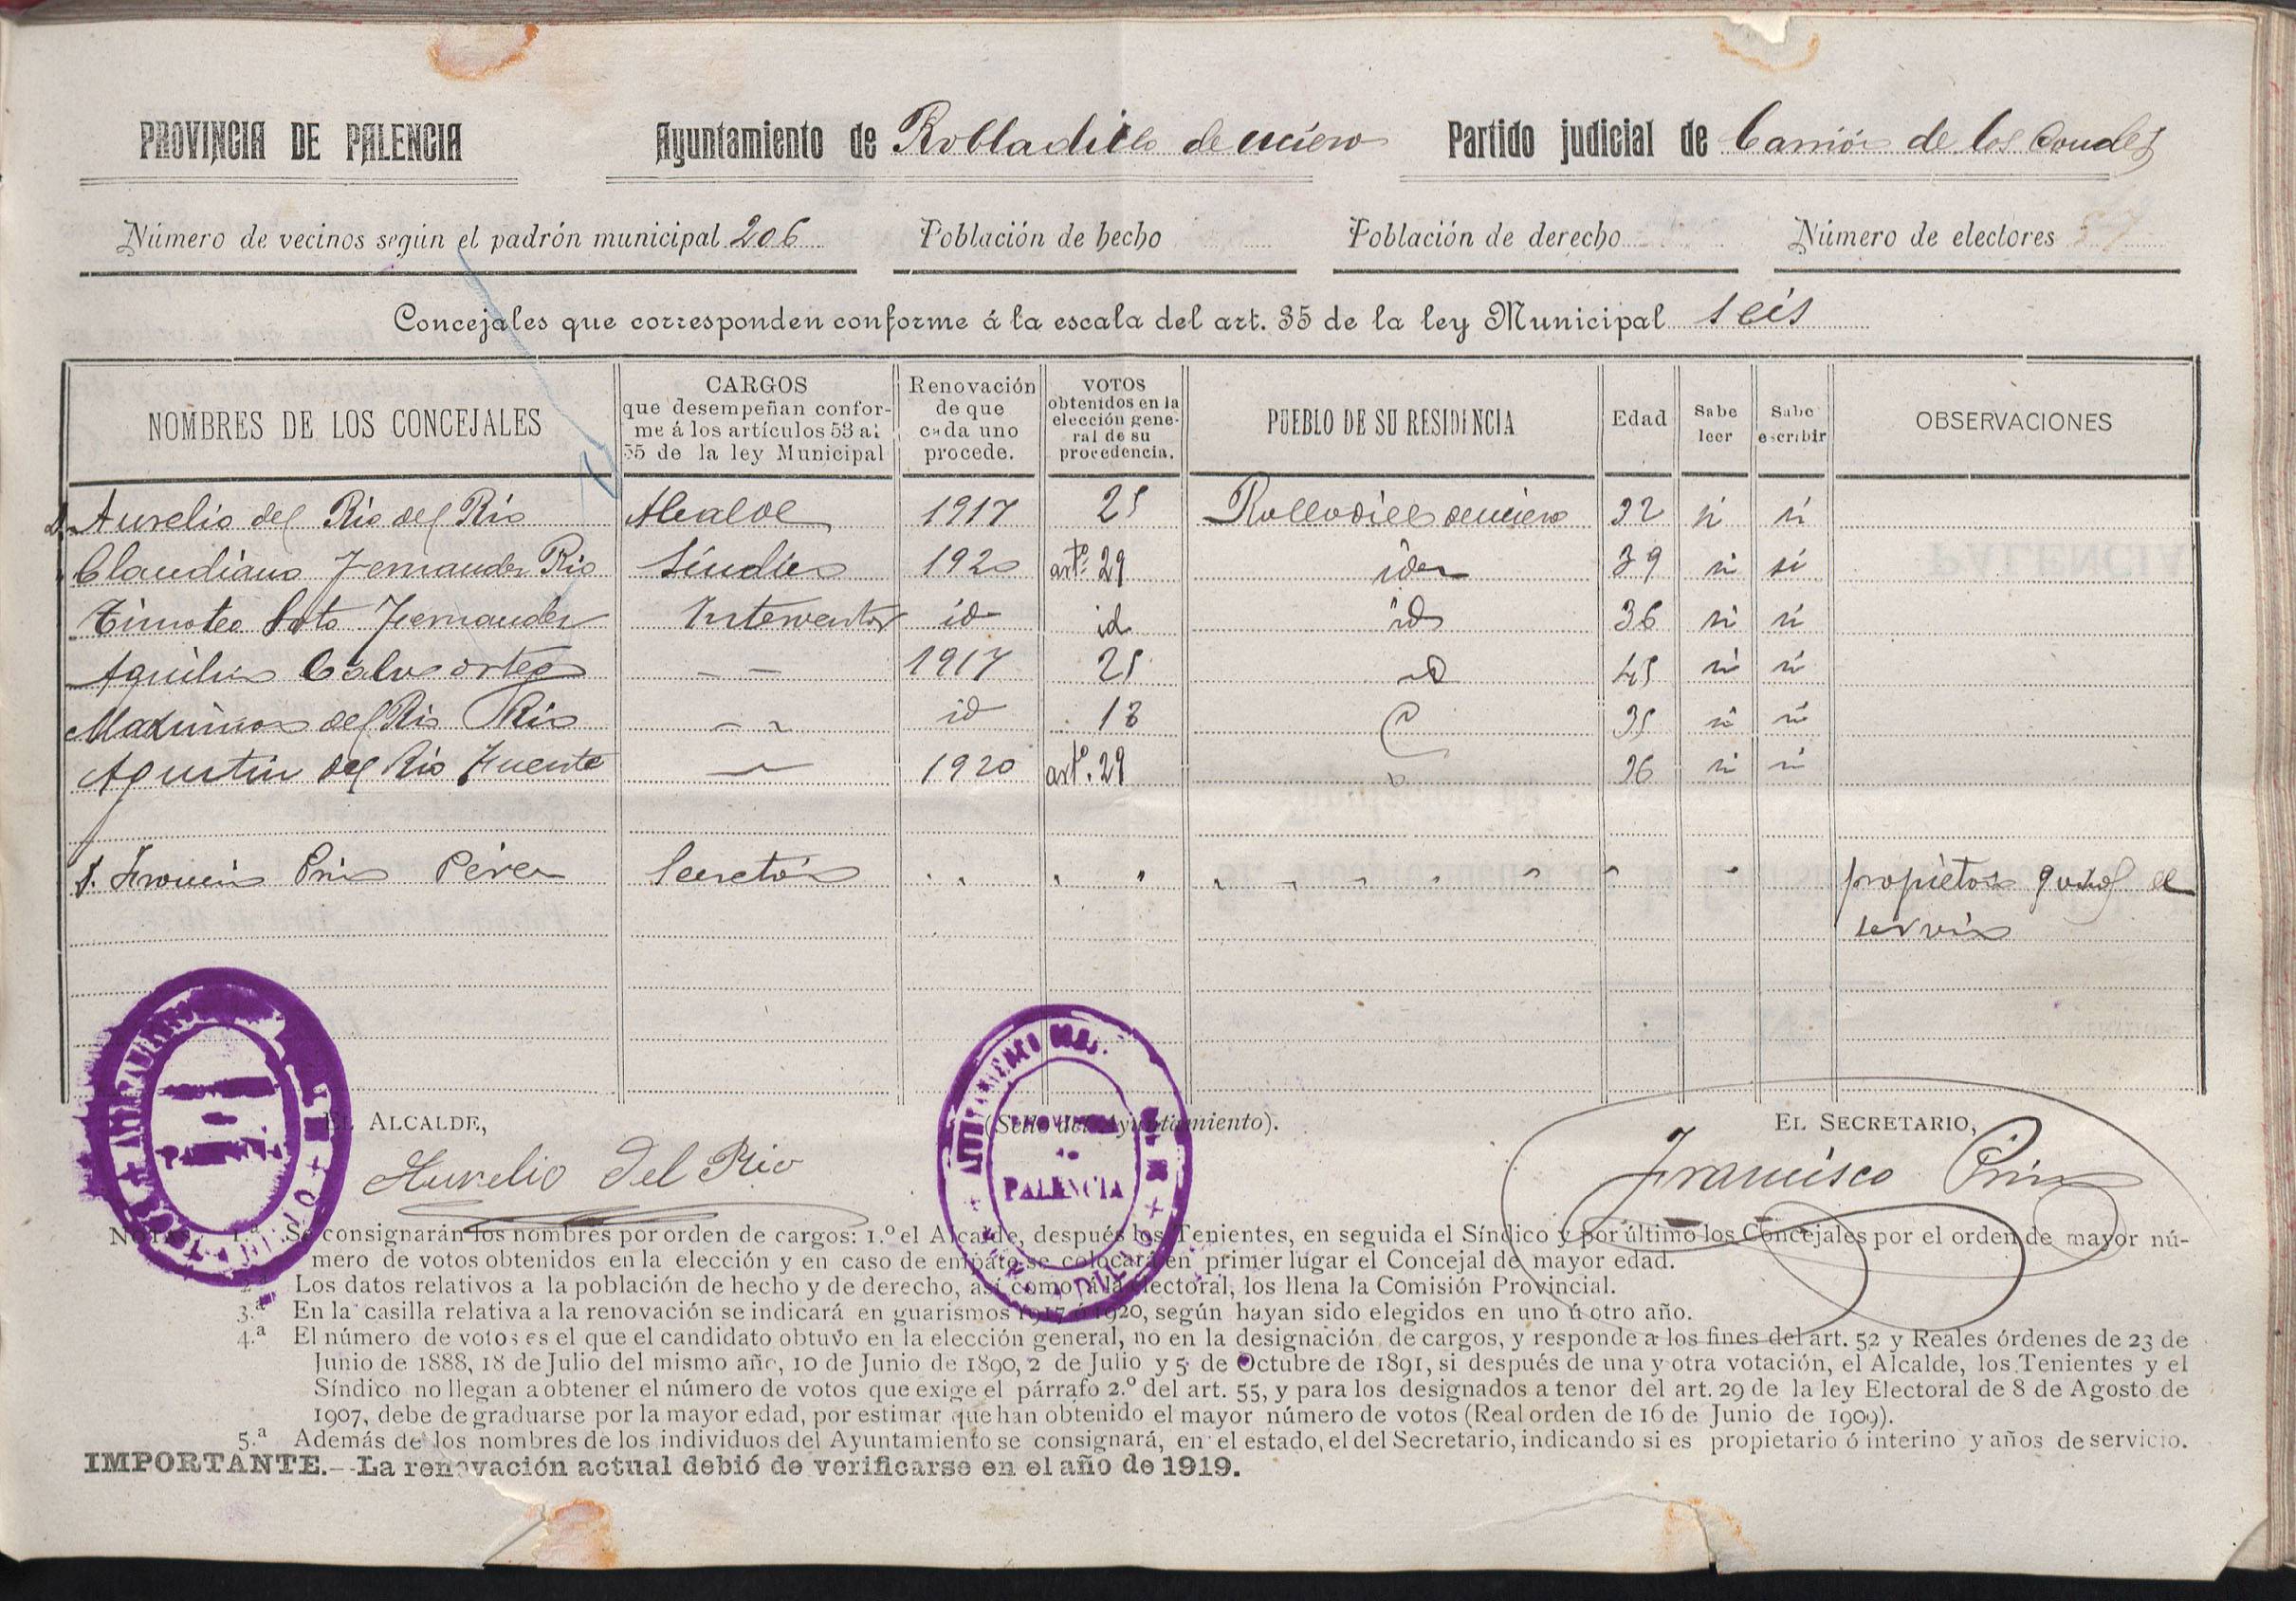 PROVINCIA DE PALENCIA Ayuntamiento de Robladillo de uciero Partido judicial de Carrión de los Condes
Número de vecinos según el padrón municipal 206 Población de hecho Población de derecho Número de electores 57
Concejales que corresponden conforme á la escala del art. 35 de la ley Municipal seis
NOMBRES DE LOS CONCEJALES CARGOS que desempeñan conforme á los artículos 53 al 55 de la ley Municipal Renovación de que cada uno procede. VOTOS obtenidos en la elección general de su procedencia. PUEBLO DE SU RESIDENCIA Edad Sabe leer Sabe escribir OBSERVACIONES
D. Aurelio del Rio del Rio Alcalde 1917 25 Robladillo de uciero 32 si si
Claudiano Fernandez Rio Síndico 1920 artº. 29 iden 39 si si
Timoteo Soto Fernandez Interventor id id id 36 si si
Aquilino Calvo ortega — — 1917 25 id 45 si si
Maximino del Rio Rio — — id 18 35 si si
Agustin del Rio Fuente — 1920 artº. 29 36 si si
D. Francisco Prin Pérez Secretario propietario de
servicio
EL ALCALDE, (Sello del Ayuntamiento). EL SECRETARIO,
Aurelio Del Rio Francisco Prin
PROVINCIA
de
PALENCIA
NOTAS 1.ª Se consignarán los nombres por orden de cargos: 1.º el Alcalde, después los Tenientes, en seguida el Síndico y por último los Concejales por el orden de mayor nú-
mero de votos obtenidos en la elección y en caso de empate se colocará en primer lugar el Concejal de mayor edad.
2.ª Los datos relativos a la población de hecho y de derecho, así como á la electoral, los llena la Comisión Provincial.
3.ª En la casilla relativa a la renovación se indicará en guarismos 1917 ó 1920, según hayan sido elegidos en uno ú otro año.
4.ª El número de votos es el que el candidato obtuvo en la elección general, no en la designación de cargos, y responde a los fines del art. 52 y Reales órdenes de 23 de
Junio de 1888, 18 de Julio del mismo año, 10 de Junio de 1890, 2 de Julio y 5 de Octubre de 1891, si después de una y otra votación, el Alcalde, los Tenientes y el
Síndico no llegan a obtener el número de votos que exige el párrafo 2.º del art. 55, y para los designados a tenor del art. 29 de la ley Electoral de 8 de Agosto de
1907, debe de graduarse por la mayor edad, por estimar que han obtenido el mayor número de votos (Real orden de 16 de Junio de 1909).
5.ª Además de los nombres de los individuos del Ayuntamiento se consignará, en el estado, el del Secretario, indicando si es propietario ó interino y años de servicio.
IMPORTANTE.—La renovación actual debió de verificarse en el año de 1919.